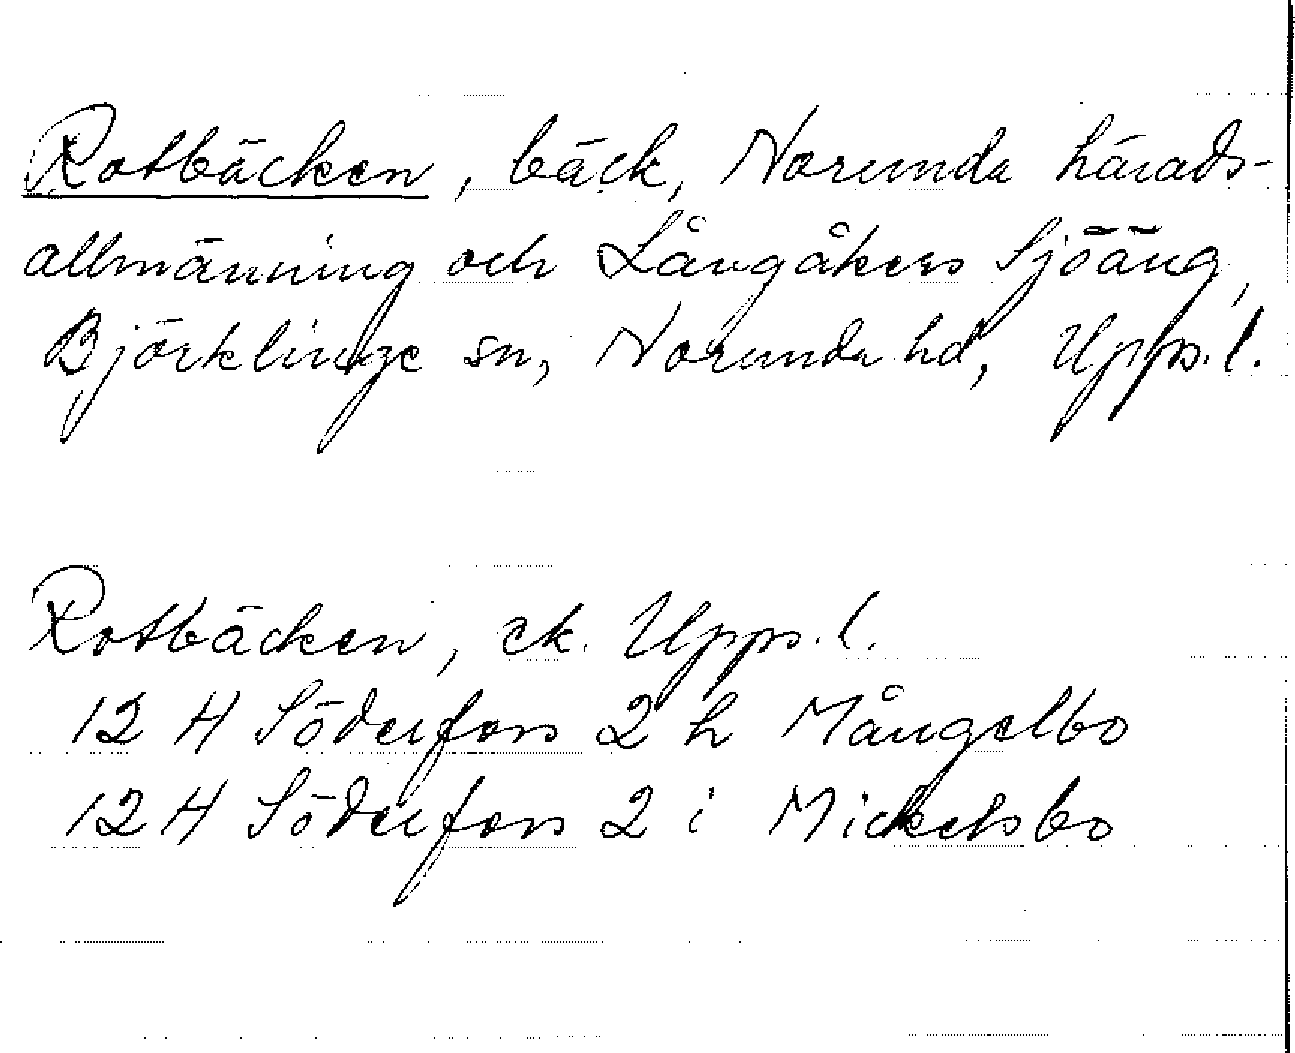 Rotbäcken, bäck, Norunda härads-
allmänning och Långåkers Sjöäng,
Björklinge sn, Norunda hd, Upps.l.
Rotbäcken, ek. Upps.l.
12 H Söderfors 2 h Mångelbo
12 H Söderfors 2 i Mickelsbo